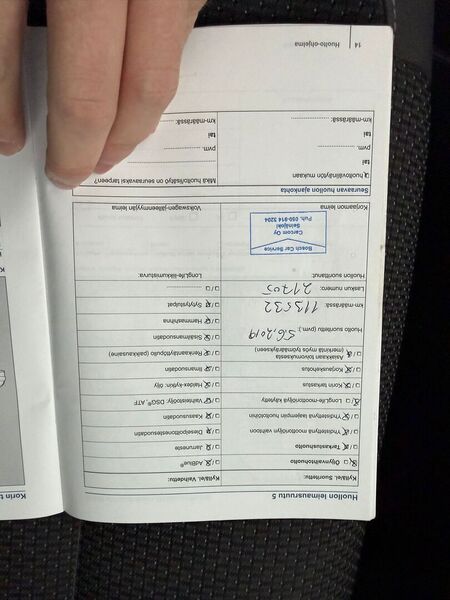 Huollon leimausruutu 5
Kyllä/ei. Suoritettu:
Öljynvaihtohuolto
Tarkastushuolto
Yhdistettynä moottoriöljyn vaihtoon
Yhdistettynä laajempiin huoltotöihin
LongLife-moottoriöljyä käytetty
Korin tarkastus
Korjauskehotus
Asiakkaan toivomuksesta
(merkintä myös työmääräykseen)
Huolto suoritettu (pvm.): 5.6.2019
km-määrässä: 113532
Laskun numero: 21705
Huollon suorittanut:
Bosch Car Service
Carcom Oy
Seinäjoki
Puh. 050-914 3204
Korjaamon leima
Kyllä/ei. Vaihdettu:
AdBlue®
Jarruneste
Dieselpolttoainesuodatin
Kaasusuodatin
Vaihteistoöljy: DSG®, ATF
Haldex-kytkin: öljy
Ilmansuodatin
Renkaantäyttöpullo (paikkausaine)
Sisäilmansuodatin
Hammashihna
Sytytystulpat
LongLife-liikumisturva:
Volkswagen-jälleenmyyjän leima
Seuraavan huollon ajankohta
huoltovälinäytön mukaan
tai
pvm.
tai
km-määrässä:
Mikä huoltolisätyö on seuraavaksi tarpeen?
pvm.
tai
km-määrässä:
14 | Huolto-ohjelma
Korin t